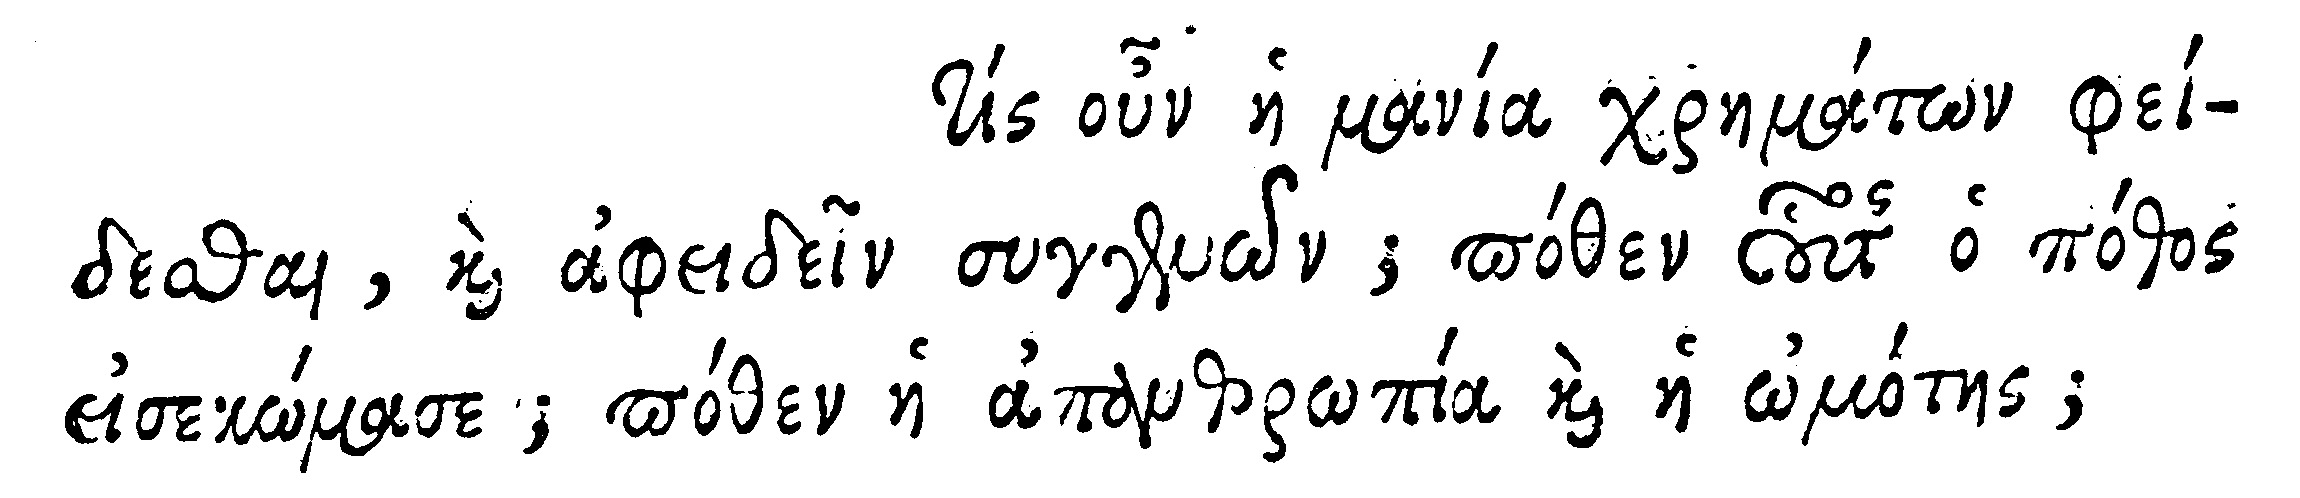 Τίς οὖν ἡ μανία χρημάτων φεί-
δεσθαι, καὶ ἀφειδεῖν συγγενῶν; πόθεν οὗτος ὁ πόθος
εἰσεκώμασε; πόθεν ἡ ἀπανθρωπία καὶ ἡ ὠμότης;